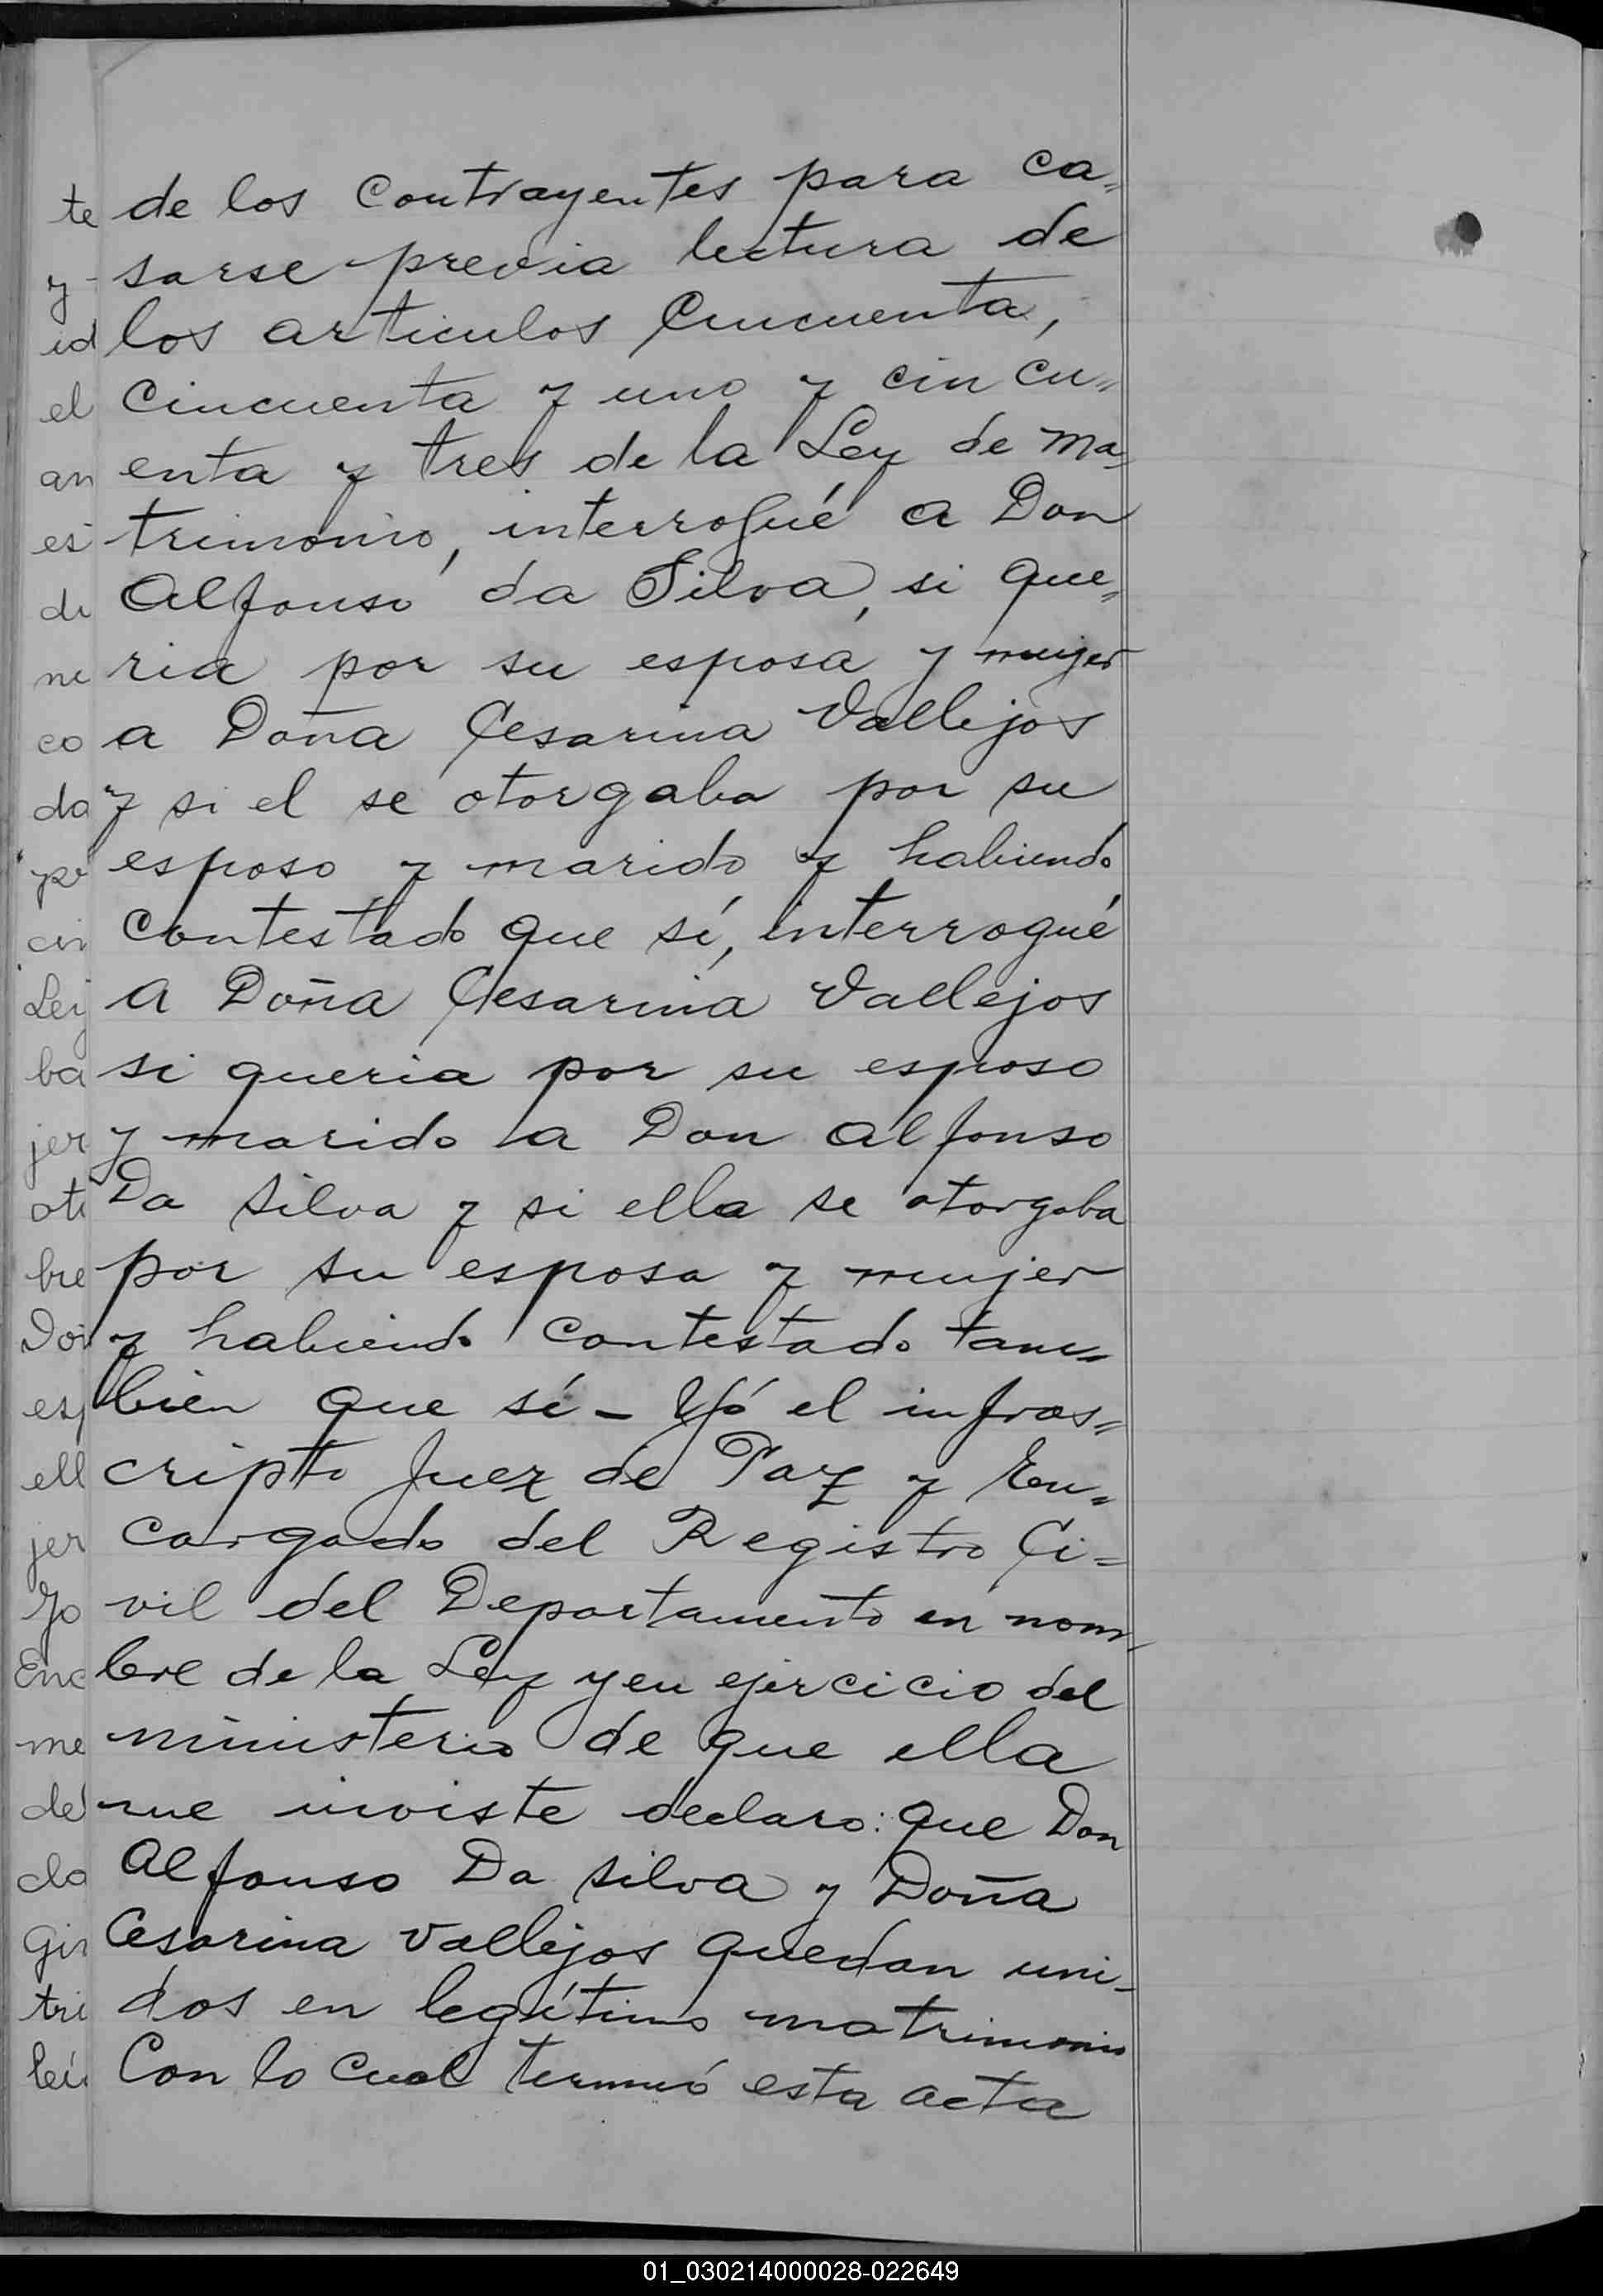 de los Contrayentes para ca„
sarse previa lectura de
los articulos Cincuenta,
cincuenta y uno y cin cu„
enta y tres de la Ley de ma„
trimonio, interrogué a Don
Alfonso da Silva, si que„
ria por su esposa y mujer
a Doña Cesarina Vallejos
y si el se otorgaba por su
esposo y marido y habiendo
contestado que sí, interrogué
a Doña Cesarina Vallejos
si queria por su esposo
y marido a Don Alfonso
Da Silva y si ella se otorgaba
por su esposa y mujer
y habiendo contestado tam„
bien que sí - Yó el infras„
cripto Juez de Paz y En„
cargado del Registro Ci=
vil del Departamento en nom-
bre de la Ley y en ejercicio del
ministerio de que ella
me inviste declaro: que Don
Alfonso Da Silva y Doña
Cesarina Vallejos quedan uni-
dos en legítimo matrimonio
Con lo cual terminó esta acta
01_030214000028-022649